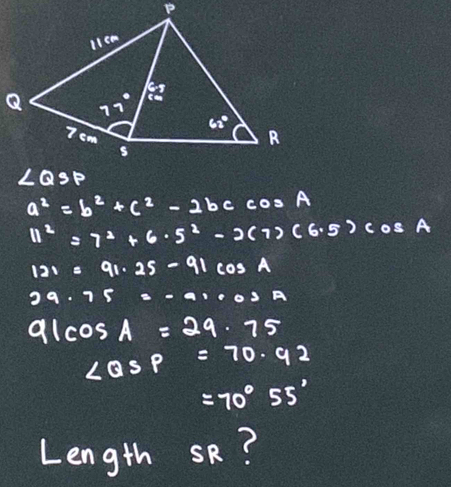 P
11 cm
6.5 cm
Q
77°
62°
7 cm
S
R
∠QSP
a² = b² + c² - 2bc cos A
11² = 7² + 6.5² - 2(7)(6.5) cos A
121 = 91.25 - 91 cos A
29.75 = -91 cos A
91 cos A = 29.75
∠QSP = 70.92
= 70° 55'
Length SR ?